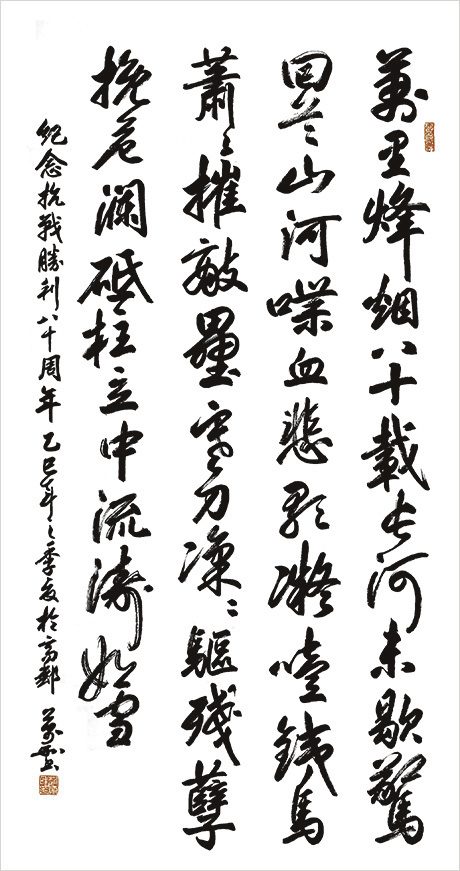 萬里烽烟八十載長河未歇驚
回首山河喋血悲歌凝噎銕馬
蕭々摧敵壘寒刀凜々驅殘孽
挽危瀾砥柱立中流濤如雪
紀念抗戰勝利八十周年 乙巳年之季夏於高郵